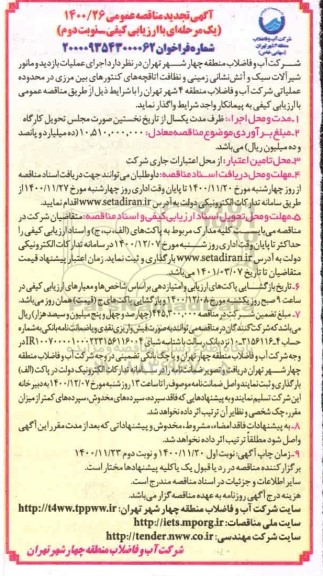 آگهی تجدید مناقصه عمومی ۱۴۰۰/۲۶
(یک مرحله‌ای با ارزیابی کیفی-نوبت دوم)
شماره فراخوان ۲۰۰۰۰۹۳۵۴۳۰۰۰۰۶۲
شرکت آب و فاضلاب
منطقه ۴ شهر تهران
(سهامی خاص)
شرکت آب و فاضلاب منطقه چهار شهر تهران در نظر دارد اجرای عملیات بازدید و مانور
شیرآلات سبک و آتش‌نشانی زمینی و نظافت اتاقچه‌های کنتورهای بین مرزی در محدوده
عملیاتی شرکت آب و فاضلاب منطقه ۴ شهر تهران را با شرایط ذیل از طریق مناقصه عمومی
با ارزیابی کیفی به پیمانکار واجد شرایط واگذار نماید.
۱-مدت و محل اجرا: ظرف مدت یکسال از تاریخ نخستین صورت مجلس تحویل کارگاه
۲-مبلغ برآوردی موضوع مناقصه معادل: ۱۰,۵۱۰,۰۰۰,۰۰۰ (ده میلیارد و پانصد
و ده میلیون ریال) می‌باشد.
۳-محل تامین اعتبار: از محل اعتبارات جاری شرکت
۴-مهلت و محل دریافت اسناد مناقصه: داوطلبان می‌توانند جهت دریافت اسناد مناقصه
از روز چهارشنبه مورخ ۱۴۰۰/۱۱/۲۰ تا پایان وقت اداری روز چهارشنبه مورخ ۱۴۰۰/۱۱/۲۷ از
طریق سامانه تدارکات الکترونیکی دولت به آدرس www.setadiran.ir اقدام نمایند.
۵-مهلت و محل تحویل اسناد ارزیابی کیفی و اسناد مناقصه: متقاضیان شرکت در
مناقصه می‌بایست کلیه مدارک مربوط به پاکت‌های (الف،ب،ج) و اسناد ارزیابی کیفی را
حداکثر تا پایان وقت اداری روز شنبه مورخ ۱۴۰۰/۱۲/۰۷ در سامانه تدارکات الکترونیکی
دولت به آدرس www.setadiran.ir بارگذاری و ثبت نماید. زمان اعتبار پیشنهاد قیمت
متقاضیان تا تاریخ ۱۴۰۱/۰۳/۰۷ می‌باشد.
۶-تاریخ بازگشایی پاکت‌های ارزیابی و امتیازدهی براساس شاخص‌ها و معیارهای ارزیابی کیفی در
ساعت ۹ صبح روز یکشنبه مورخ ۱۴۰۰/۱۲/۰۸ و بازگشایی پاکت‌های ج (قیمت) همان روز می‌باشد.
۷-مبلغ تضمین شرکت در مناقصه ۴۴۵,۳۰۰,۰۰۰ (چهارصد و چهل و پنج میلیون و سیصد هزار) ریال
می‌باشد که شرکت‌کنندگان در مناقصه می‌توانند به صورت فیش واریزی نقدی و یا ضمانتنامه بانکی به شماره
وجه شرکت آب و فاضلاب منطقه چهار تهران و یا چک بانکی تضمینی در وجه شرکت آب و فاضلاب منطقه
چهار شهر تهران دریافت و تصویر ضمانتنامه را در سامانه تدارکات الکترونیک دولت در پاکت (الف)
بارگذاری و ثبت نمایند و اصل ضمانتنامه موصوف را تا ساعت ۱۳ روز شنبه مورخ ۱۴۰۰/۱۲/۰۷ به دبیرخانه
این شرکت تسلیم نمایند و به پیشنهادهایی که فاقد سپرده، سپرده‌های مخدوش، سپرده‌های کمتر از میزان
مقرر، چک شخصی و نظایر آن ترتیب اثر داده نخواهد شد.
۸-به پیشنهادات فاقد امضاء، مشروط، مخدوش و پیشنهاداتی که بعد از مدت مقرر این آگهی
وصول شود مطلقا ترتیب اثر داده نخواهد شد.
۹-زمان چاپ آگهی: نوبت اول ۱۴۰۰/۱۱/۲۰ و نوبت دوم ۱۴۰۰/۱۱/۲۳
برگزار کننده مناقصه در رد یا قبول یک یا کلیه پیشنهادها مختار است.
سایر اطلاعات و جزئیات در اسناد مناقصه مندرج است.
هزینه درج آگهی روزنامه به عهده مناقصه گزار می‌باشد.
سایت شرکت آب و فاضلاب منطقه چهار شهر تهران: http://t4ww.tppww.ir
سایت ملی مناقصات: http://iets.mporg.ir
سایت شرکت مهندسی: http://tender.nww.co.ir
شرکت آب و فاضلاب منطقه چهار شهر تهران